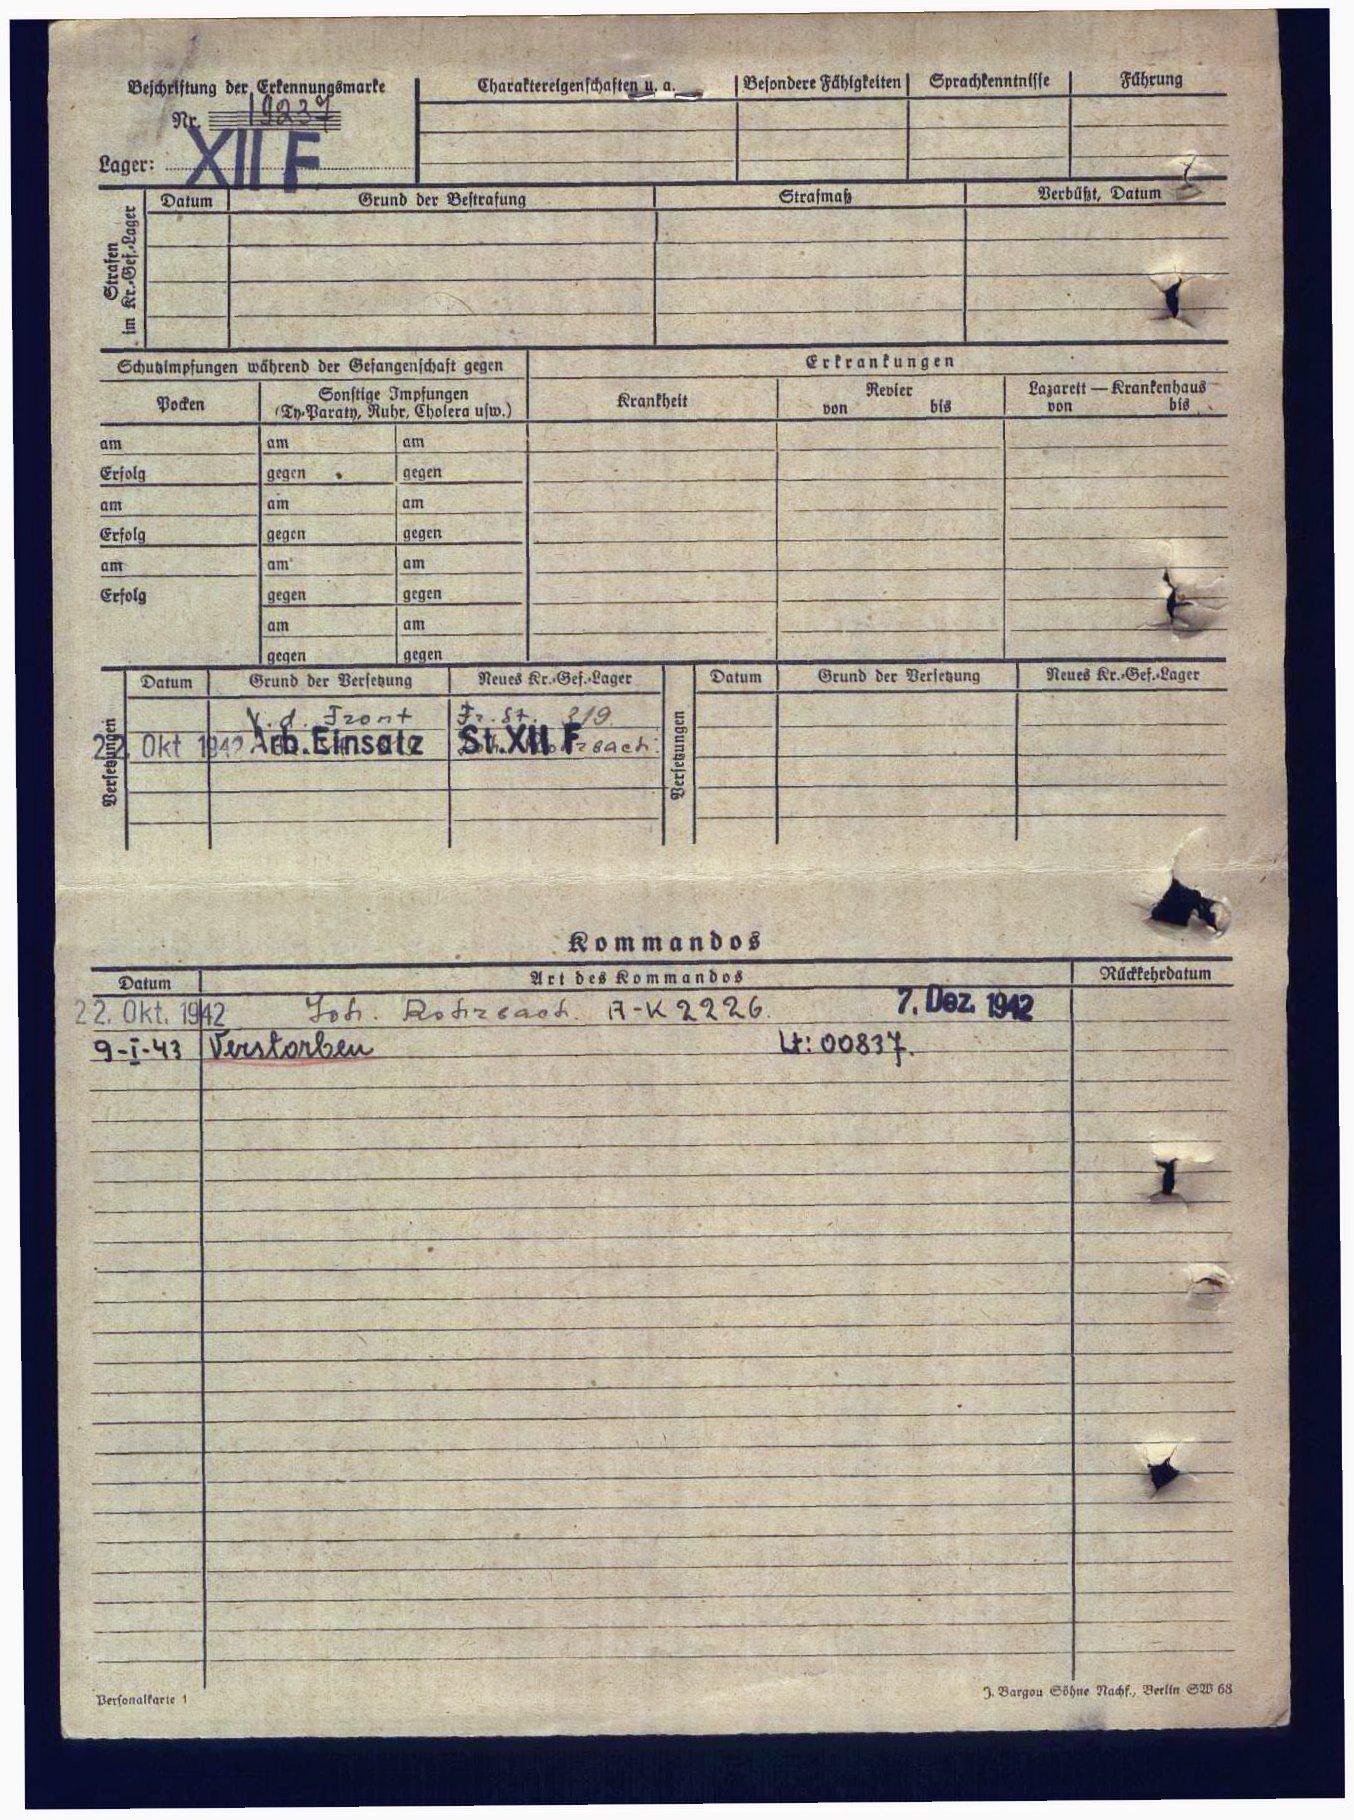 Beschriftung der Erkennungsmarke
Nr. 19237
Lager: XII F
Charaktereigenschaften u. a.
Besondere Fähigkeiten
Sprachkenntnisse
Führung
Strafen im Kr.-Gef.-Lager
Datum
Grund der Bestrafung
Strafmaß
Verbüßt, Datum
Schutzimpfungen während der Gefangenschaft gegen
Erkrankungen
Pocken
Sonstige Impfungen
(Ty-Paraty, Ruhr, Cholera usw.)
Krankheit
Revier
von bis
Lazarett — Krankenhaus
von bis
am am am
Erfolg gegen gegen
am am am
Erfolg gegen gegen
am am am
Erfolg gegen gegen
am am
gegen gegen
Versetzungen
Datum Grund der Versetzung Neues Kr.-Gef.-Lager
V. d. Front Fr. St. 319
22. Okt 1942 Arb. Einsatz St. XII F
Versetzungen
Datum Grund der Versetzung Neues Kr.-Gef.-Lager
Kommandos
Datum Art des Kommandos Rückkehrdatum
22. Okt. 1942 Joh. Rohrbach. A-K 2226. 7. Dez. 1942
9-I-43 Verstorben Lt: 00837.
Personalkarte 1
J. Bargou Söhne Nachf., Berlin SW 68